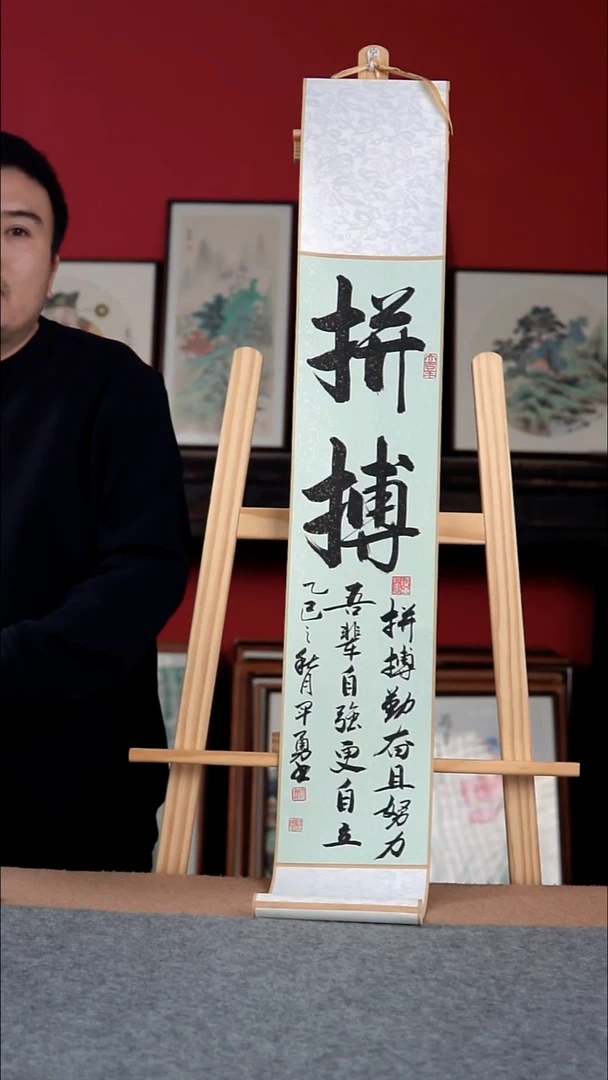 拼搏
拼搏勤奋且努力
吾辈自强更自立
乙巳之秋月平勇书